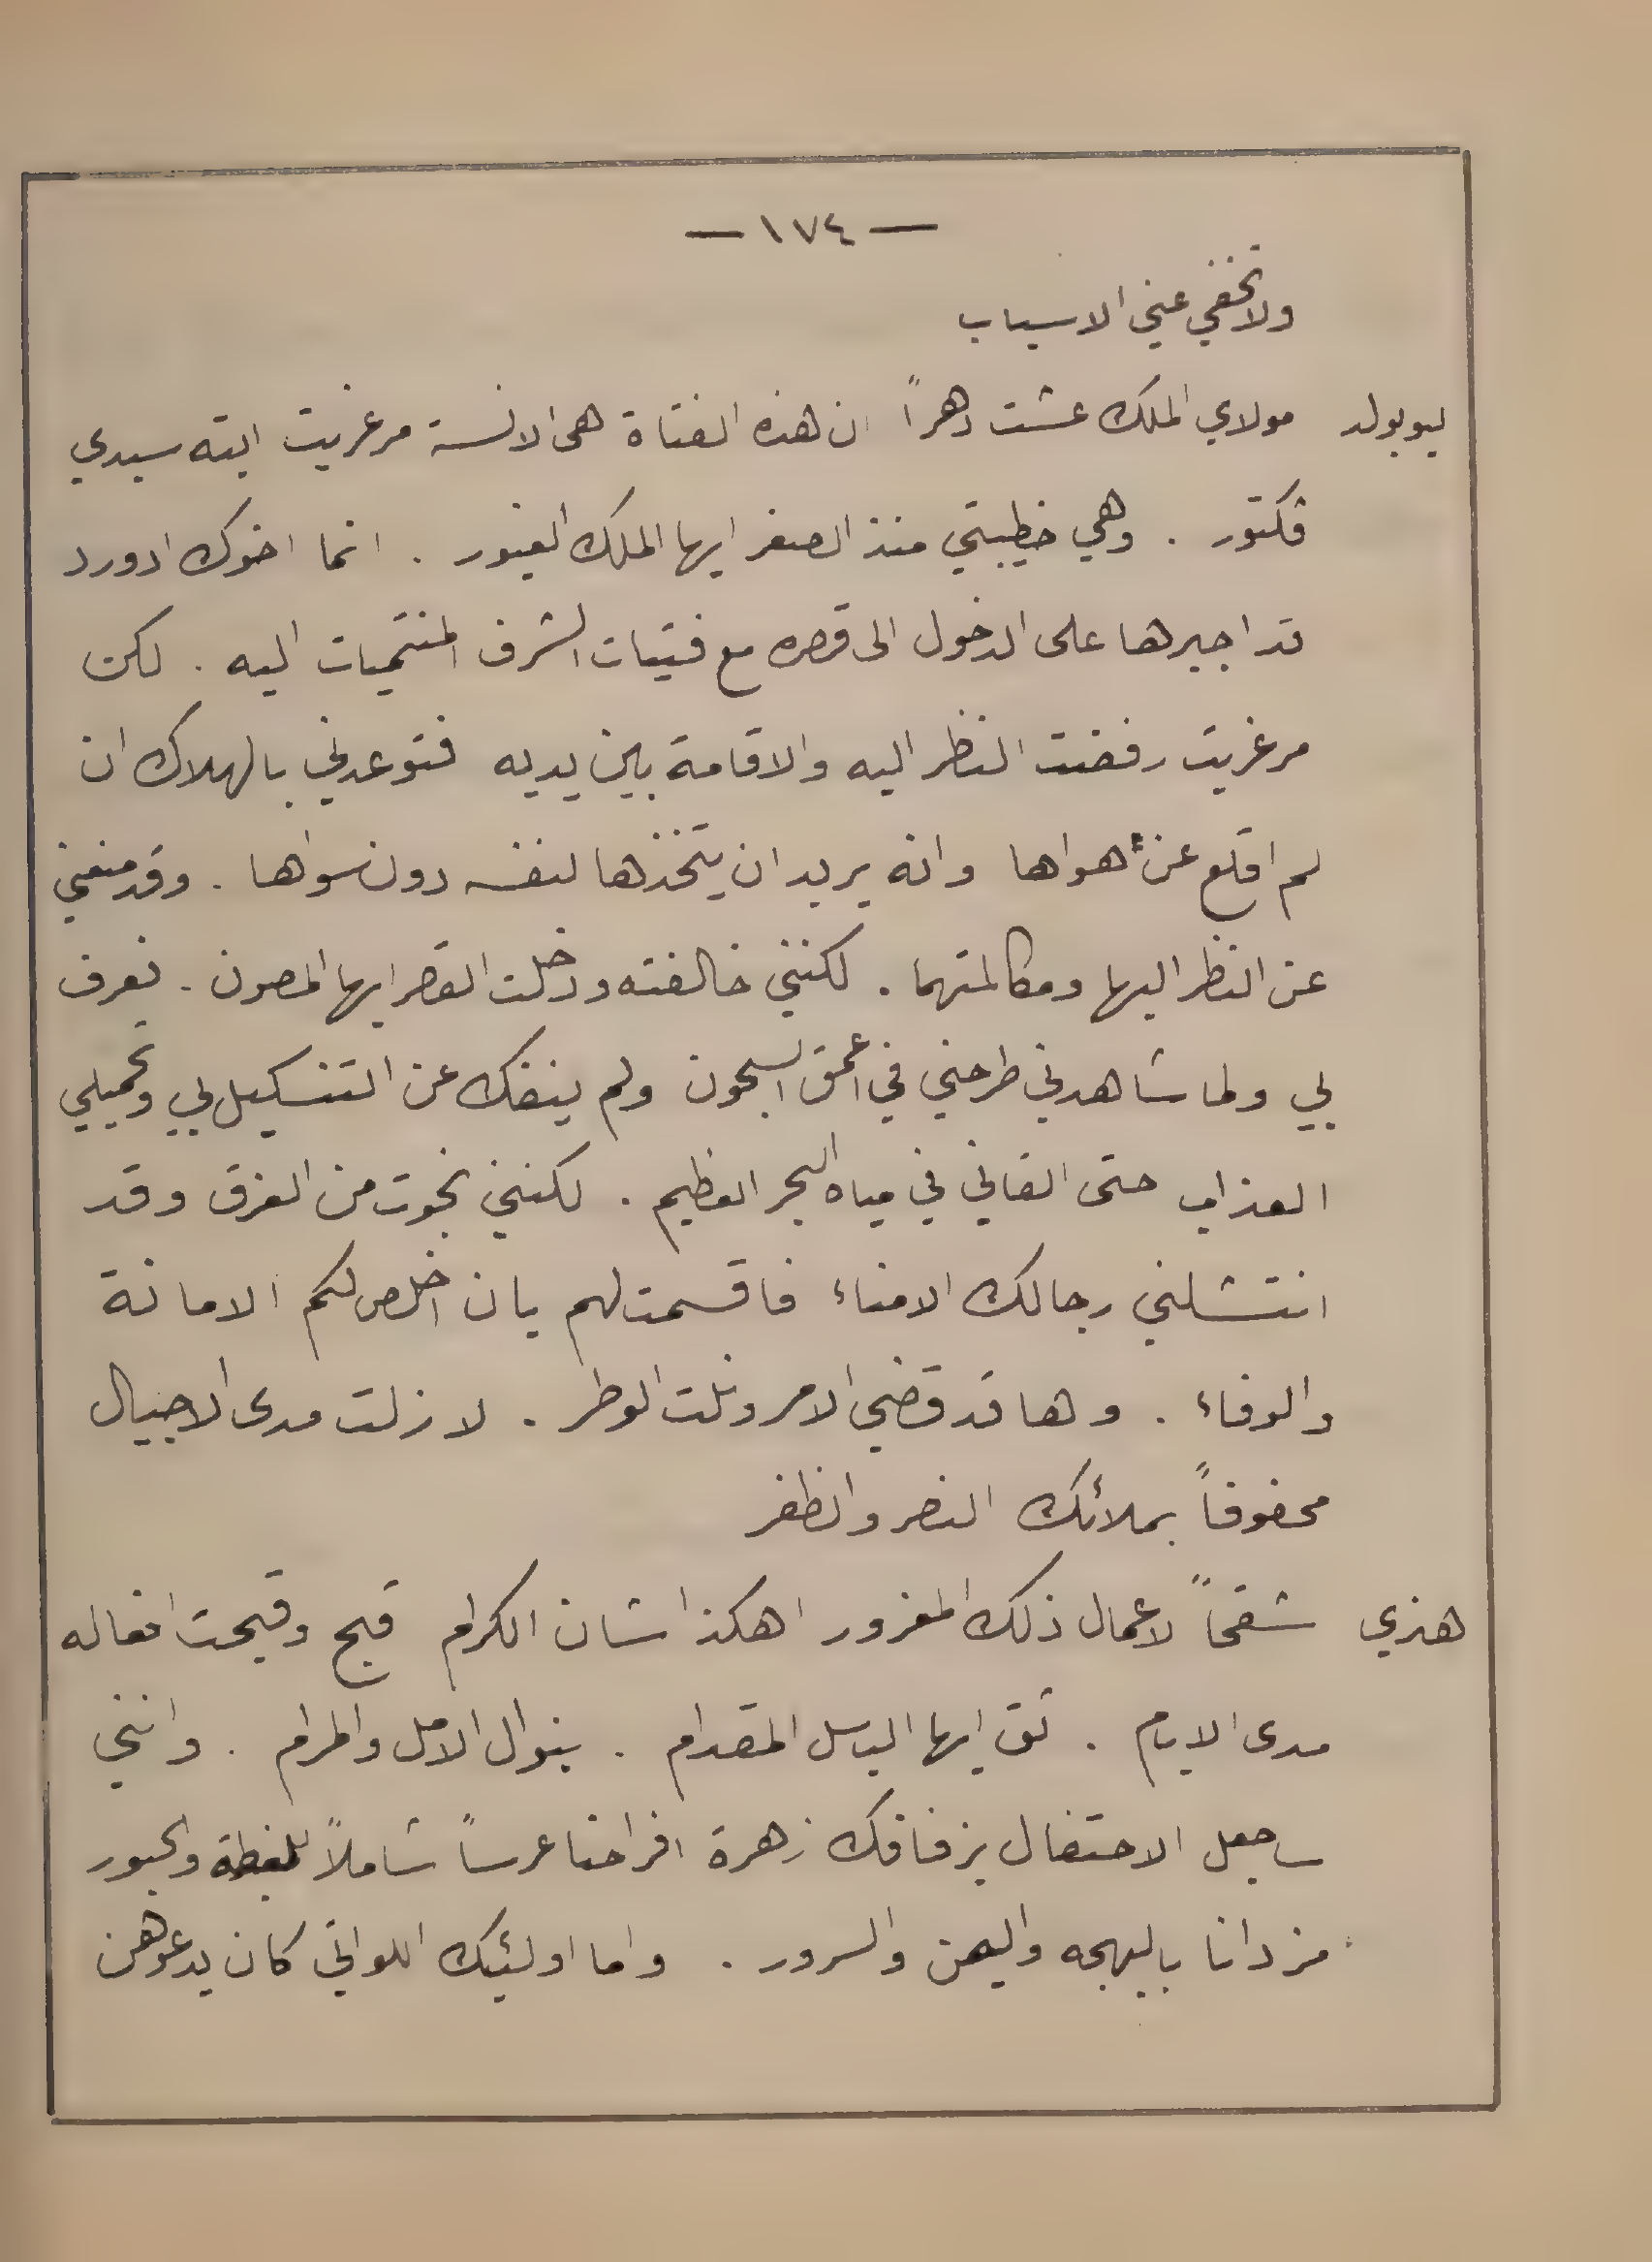 — ١٧٤ —
ولا تخفي عني الاسباب
ليوبولد مولاي الملك عشت دهراً ان هذه الفتاة هي الانسة مرغريت ابنه سيدي
فكتور . وهي خطيبتي منذ الصغر ايها الملك الغيور . انما اخوك ادورد
قد اجبرها على الدخول الى قصره مع فتيات الشرف المنتميات اليه . لكن
مرغريت رفضت النظر اليه والاقامة بين يديه فتوعدني بالهلاك ان
لم اقلع عن هواها وانه يريد ان يتخذها لنفسه دون سواها . وقد منعني
عن النظر اليها ومكالمتها . لكنني خالفته ودخلت القصر ايها المصون . فعرف
بي ولما شاهدني طرحني في اعمق السجون ولم ينفك عن التنكيل بي وتحميلي
العذاب حتى القاني في مياه البحر العظيم . لكنني نجوت من الغرق وقد
انتشلني رجالك الامناء فاقسمت لهم بان اخلص لكم الامانة
والوفاء . وها قد قضي الامر ونلت الوطر . لا زلت مدى الاجيال
محفوفاً بملائك النصر والظفر
هنري شقحاً لاعمال ذلك المغرور اهكذا شان الكرام قبح وقبحت افعاله
مدى الايام . ثق ايها الباسل المقدام . بنوال الامل والمرام . وانني
ساجعل الاحتفال بزفافك زهرة افراحنا عرساً شاملاً للغبطة والحبور
مزدانا بالبهجه واليمن والسرور . واما اولئيك اللواتي كان يدعوهن